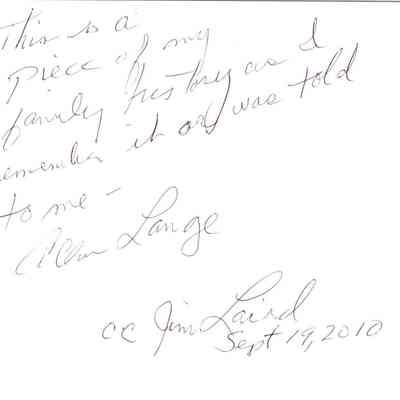 This is a
piece of my
family history as I
emember it or was told
to me -
Lange
cc Jim Laird
Sept 19, 2010